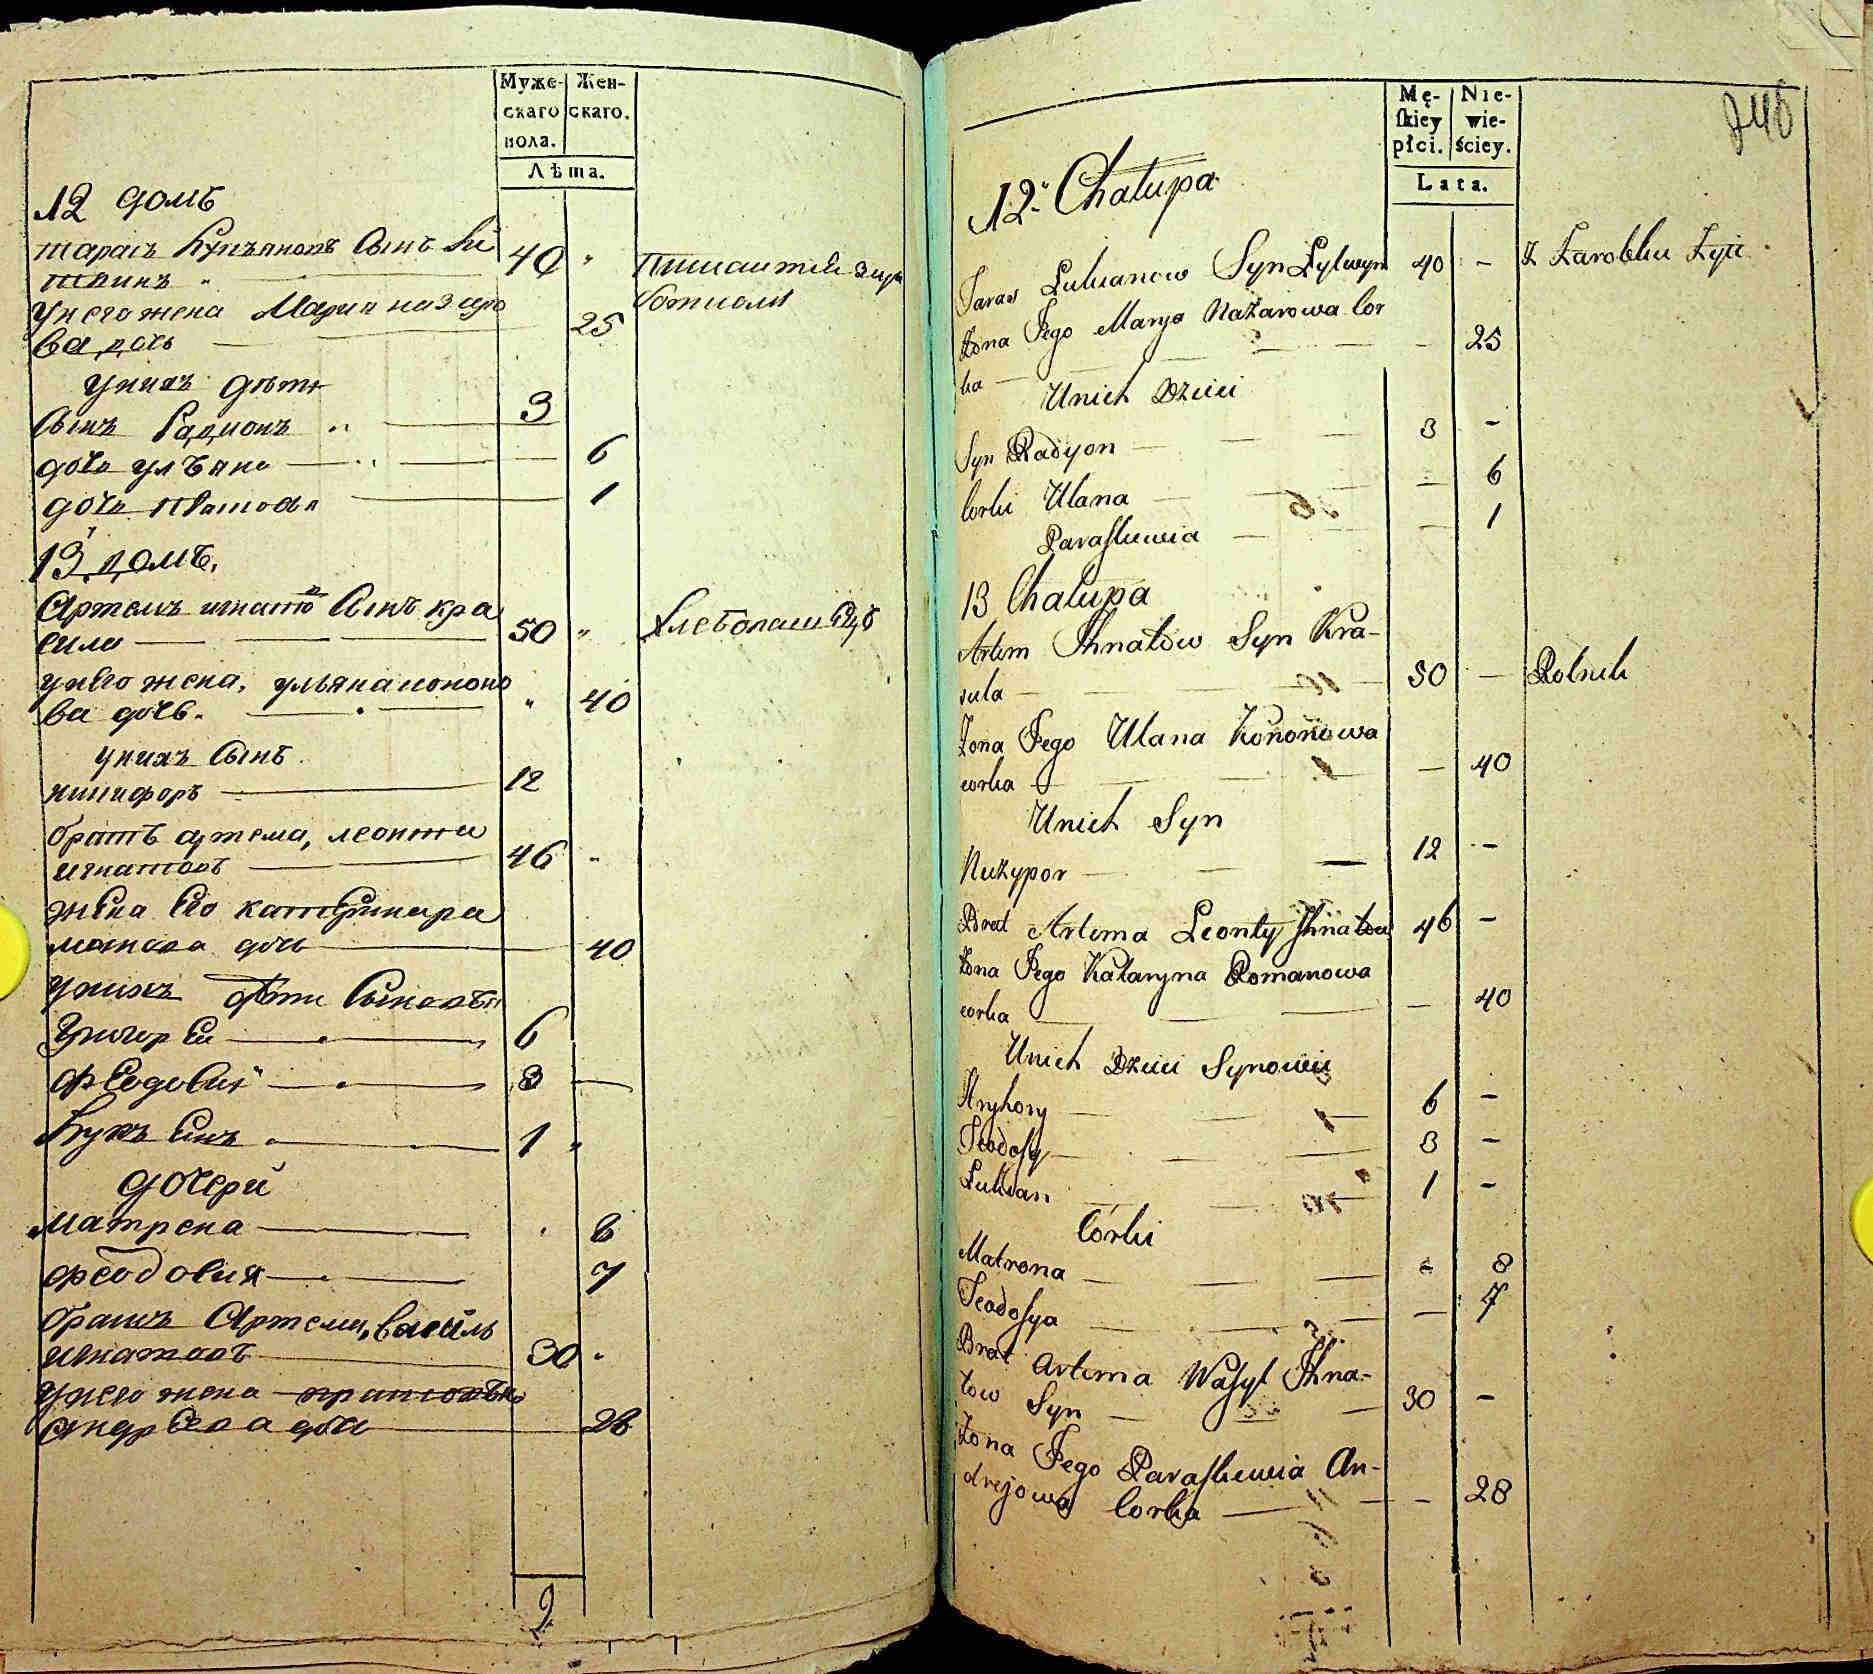 Муже-
скаго
пола.
Жен-
скаго.
Лѣта.
12 домъ
тарасъ Лукъяновъ Сынъ Ли
твинъ 40 "
У него жена Мария назаро
ва дочь 25
Питается зара
ботиоми
У нихъ дѣти
Сынъ Радионъ 3
дочь улъяна 6
дочь 1
13 домъ.
Артемъ игнатовъ Сынъ кра
сила 50 "
Хлебопашецъ
У него жена, ульяна кононо
ва дочь. " 40
У нихъ Сынъ
никифоръ 12
братъ артема, леонти
игнатовъ 46 "
жена Его катерина ра
манова дочь 40
У нихъ дѣти Сыновья
Григорей 6
феодосий 3
Лукъянъ 1 "
дочери
Матрена 8
феодосия 7
братъ Артема, василь
игнатовъ 30 "
У него жена
андреева дочь 28
2
Mę-
skiey
płci.
Nie-
wie-
ściey.
Lata.
246
12 Chałupa
Taras Łukianow Syn Lytwyn 40 - Z Zarobku Zyie
Żona Jego Marya Nazarowa Cor
ka - 25
Unich Dzieci
Syn Radyon 3 -
Corki Ulana - 6
Paraskiewia - 1
13 Chałupa
Artem Ihnatow Syn Kra-
siła 50 - Rolnik
Żona Jego Ulana Kononowa
corka - 40
Unich Syn
Nikypor 12 -
Brat Artema Leonty Ihnatow 46 -
Żona Jego Katarzyna Romanowa
corka - 40
Unich Dzieci Synowie
Hryhory 6 -
Teodosy 3 -
Łukian 1 -
Córki
Matrona - 8
Teodosya - 7
Brat Artema Wasyl Ihna-
tow Syn 30 -
Żona Jego Paraskiewia An-
drejowa Corka - 28